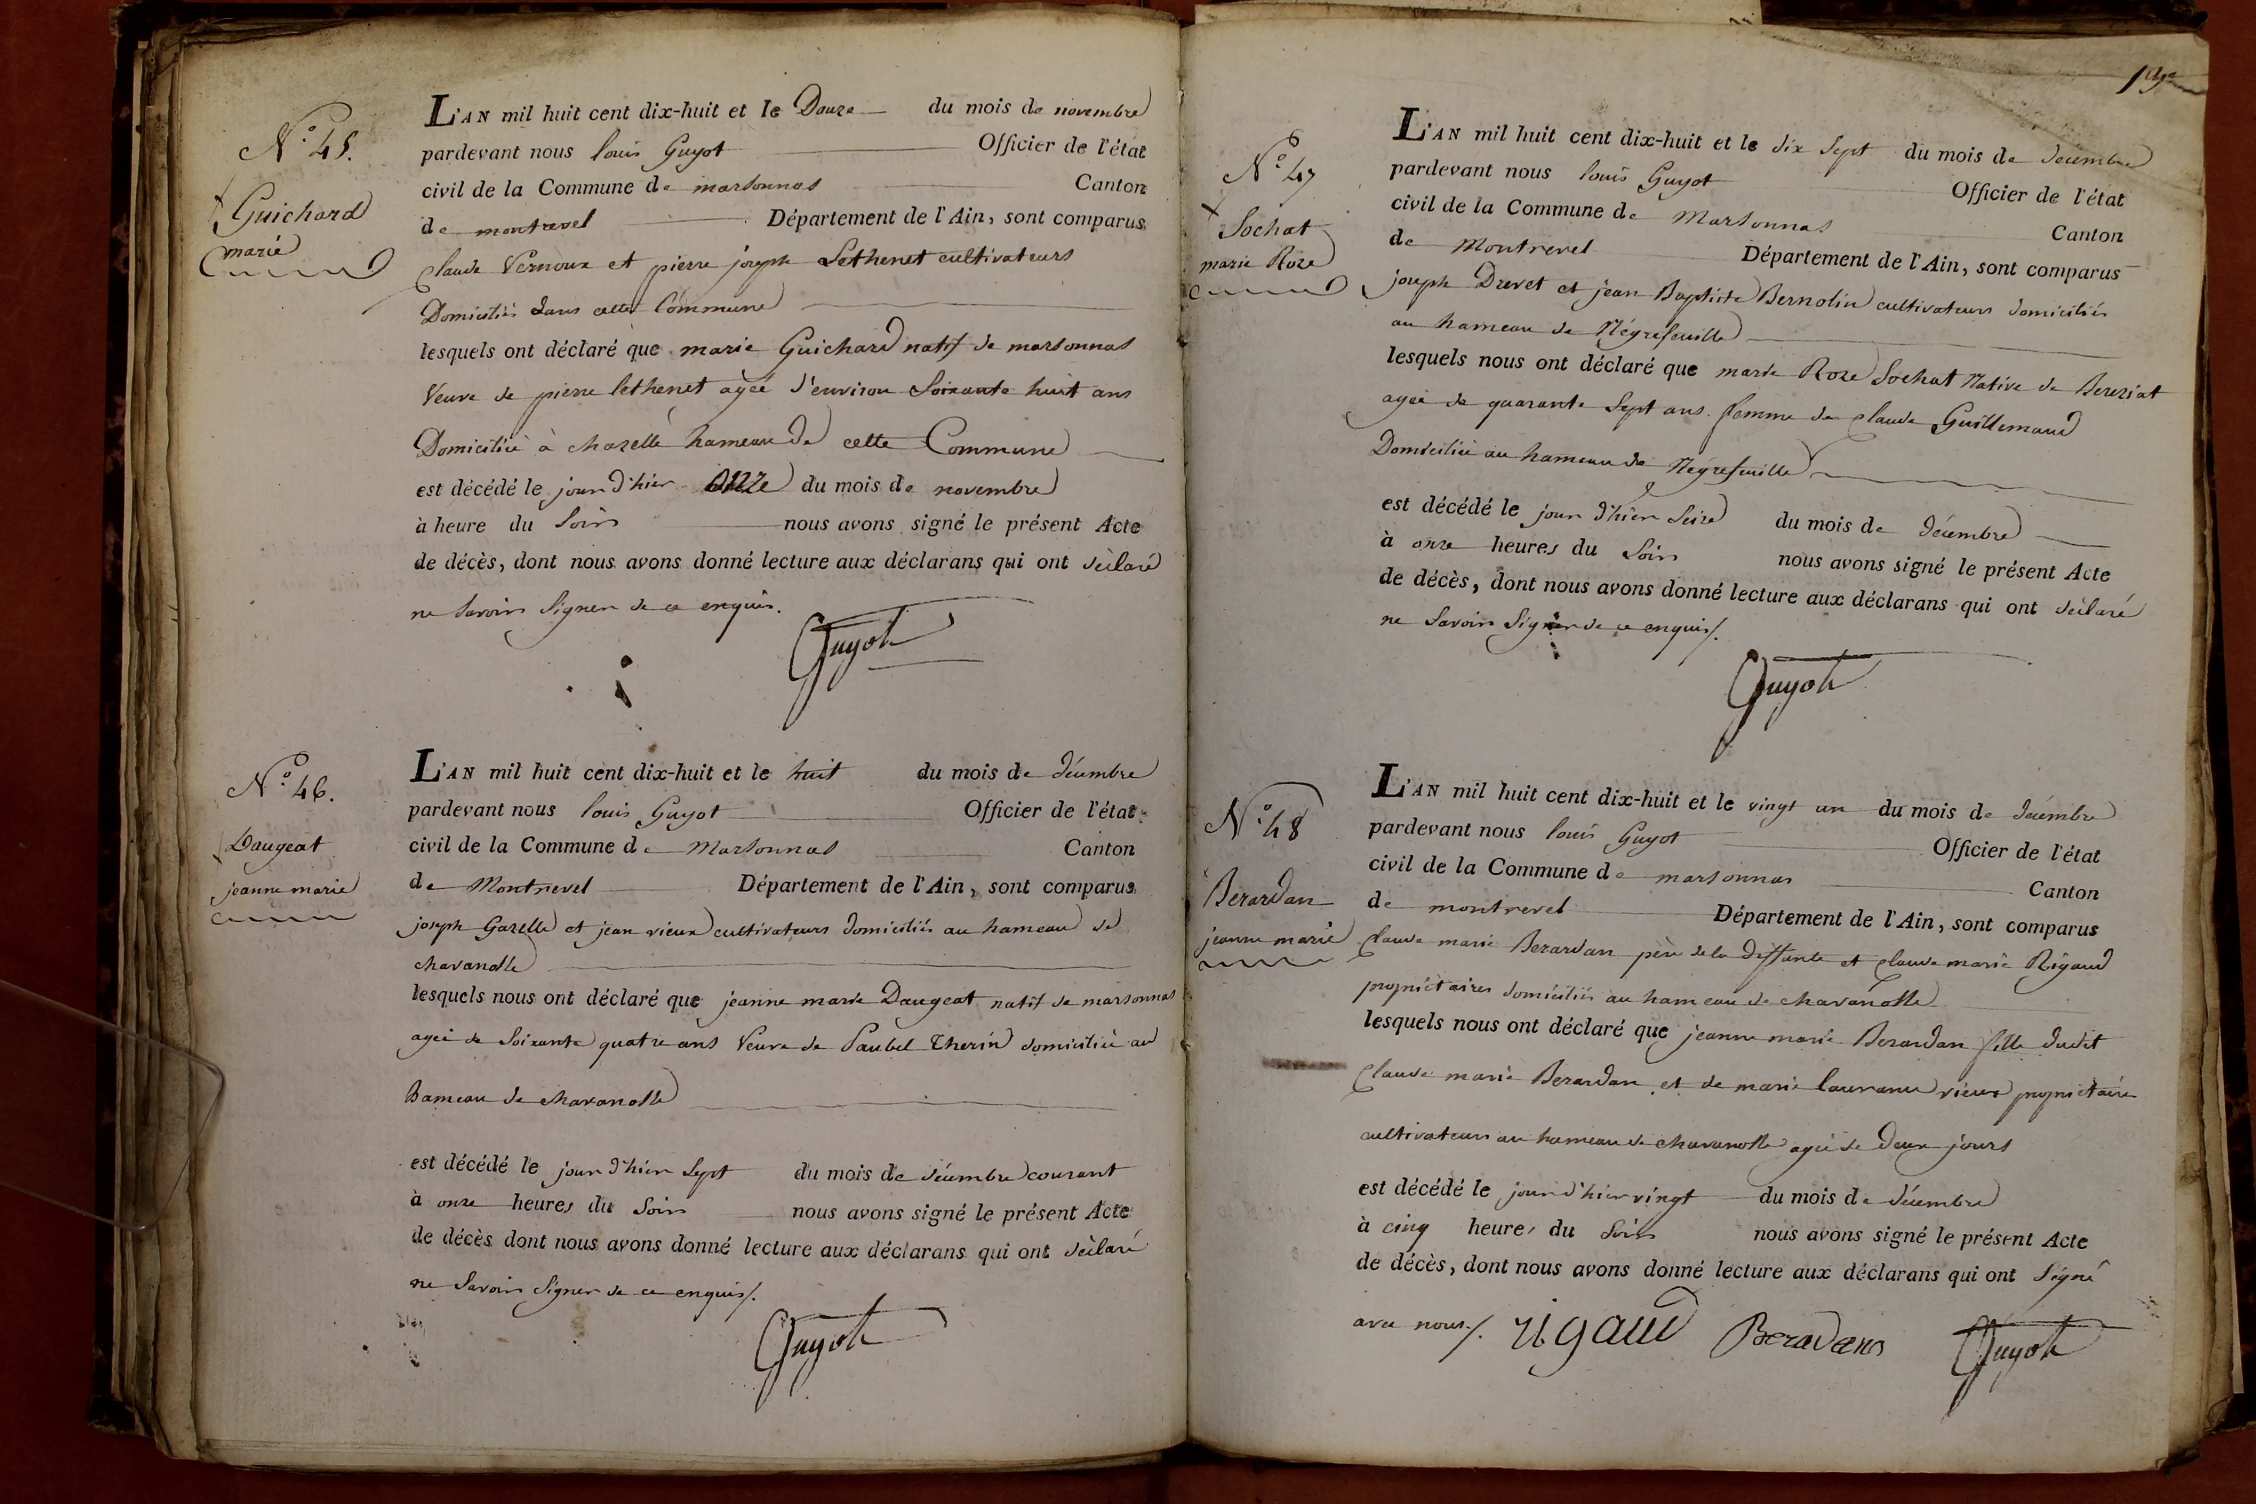 N.º 45.
Guichard
marie
L'AN mil huit cent dix-huit et le Douze du mois de novembre
pardevant nous louis Guyot Officier de l'état
civil de la Commune de marsonnas Canton
de montrevel Département de l'Ain, sont comparus
Claude Vernoux et pierre joseph Lethenet cultivateurs
Domiciliés dans cette Commune
lesquels ont déclaré que marie Guichard natif de marsonnas
Veuve de pierre lethenet agée d'environ Soixante huit ans
Domiciliée à chazelle hameau de cette Commune
est décédé le jour d'hier onze du mois de novembre
à heure du Soir nous avons signé le présent Acte
de décès, dont nous avons donné lecture aux déclarans qui ont déclaré
ne Savoir Signer de ce enquis.
Guyot
N.º 46.
Daugeat
jeanne marie
L'AN mil huit cent dix-huit et le huit du mois de décembre
pardevant nous louis Guyot Officier de l'état
civil de la Commune de Marsonnas Canton
de Montrevel Département de l'Ain, sont comparus
joseph Gazelle et jean vieux cultivateurs domiciliés au hameau de
chavanolle
lesquels nous ont déclaré que jeanne marie Daugeat natif de marsonnas
agée de Soixante quatre ans Veuve de Therin domiciliée au
hameau de chavanolle
est décédé le jour d'hier Sept du mois de décembre courant
à onze heures du Soir nous avons signé le présent Acte
de décès dont nous avons donné lecture aux déclarans qui ont déclaré
ne Savoir Signer de ce enquis/.
Guyot
N.º 47
Sochat
marie Roze
L'AN mil huit cent dix-huit et le dix Sept du mois de décembre
pardevant nous louis Guyot Officier de l'état
civil de la Commune de Marsonnas Canton
de Montrevel Département de l'Ain, sont comparus
joseph Drevet et jean Baptiste Bernolin cultivateurs domiciliés
au hameau de Négrefeuille
lesquels nous ont déclaré que marie Roze Sochat Native de Bereziat
agée de quarante Sept ans femme de Claude Guillemaud
Domiciliée au hameau de Négrefeuille
est décédé le jour d'hier Seize du mois de décembre
à onze heures du Soir nous avons signé le présent Acte
de décès, dont nous avons donné lecture aux déclarans qui ont déclaré
ne Savoir Signer de ce enquis/.
Guyot
N.º 48
Berardan
jeanne marie
L'AN mil huit cent dix-huit et le vingt un du mois de décembre
pardevant nous louis Guyot Officier de l'état
civil de la Commune de marsonnas Canton
de montrevel Département de l'Ain, sont comparus
Claude marie Berardan père de la deffunte et Claude marie Rigaud
propriétaires domiciliés au hameau de chavanolle
lesquels nous ont déclaré que jeanne marie Berardan fille dudit
Claude marie Berardan et de marie vieux propriétaire
cultivateurs au hameau de chavanolle agée de Deux jours
est décédé le jour d'hier vingt du mois de décembre
à cinq heures du Soir nous avons signé le présent Acte
de décès, dont nous avons donné lecture aux déclarans qui ont Signé
avec nous/. rigaud Beradan Guyot